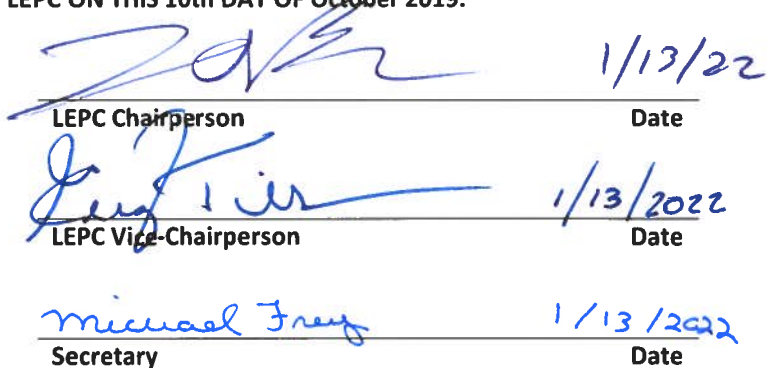 LEPC ON THIS 10th DAY OF October 2019.
1/13/22
LEPC Chairperson Date
1/13/2022
LEPC Vice-Chairperson Date
Michael Frey 1/13/2022
Secretary Date